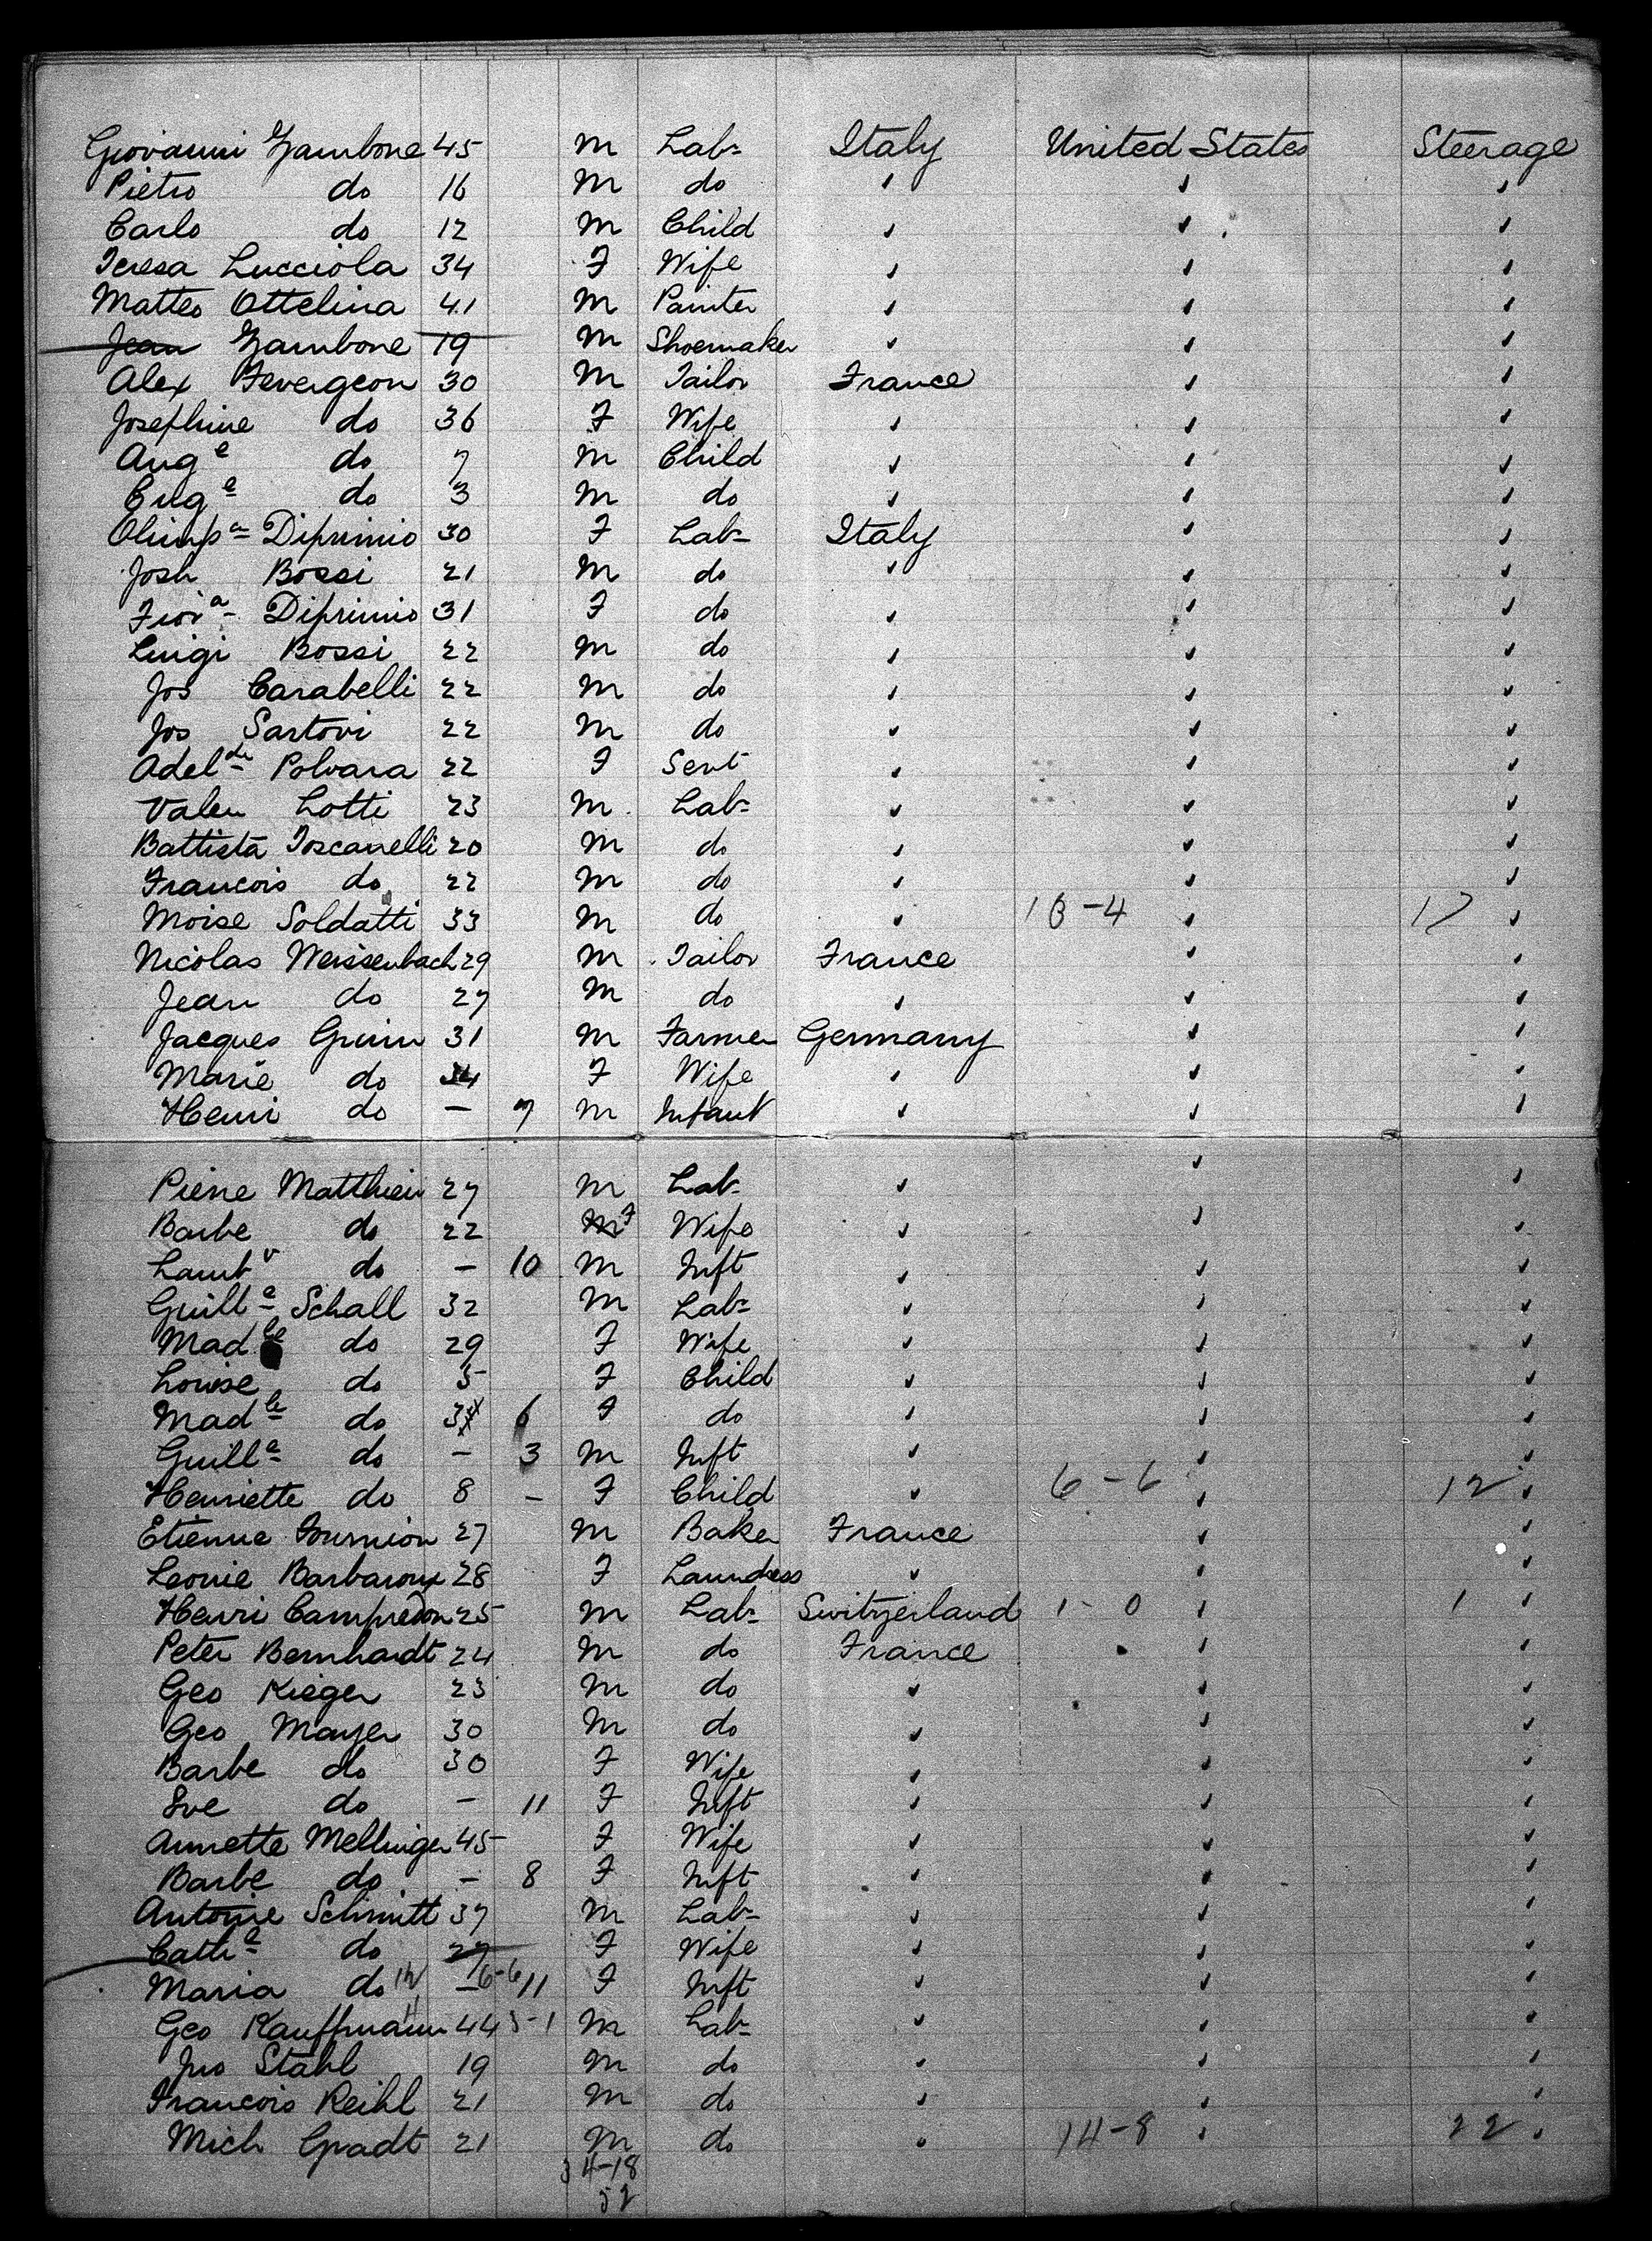 Giovanni Zambone 45 M Labr Italy United States Steerage
Pietro do 16 M do
Carlo do 12 M Child
Teresa Lucciola 34 F Wife
Matteo Ottelina 41 M Painter
Jean Zambone 19 M Shoemaker
Alex Fevergeon 30 M Tailor France
Josephine do 36 F Wife
Auge do 7 M Child
Euge do 3 M do
Olimpa Diprimio 30 F Labr Italy
Josh Bossi 21 M do
Fiora Diprimio 31 F do
Luigi Bossi 22 M do
Jos Carabelli 22 M do
Jos Sartori 22 M do
Adelde Polvara 22 F Servt
Valen Lotti 23 M Labr
Battista Toscanelli 20 M do
Francois do 22 M do
Moise Soldatti 33 M do 13-4 17
Nicolas Weissenbach 29 M Tailor France
Jean do 27 M do
Jacques 31 M Farmer Germany
Marie do 34 F Wife
Henri do - 7 M Infant
Pierre Matthieu 27 M Labr
Barbe do 22 M F Wife
Lambt do - 10 M Inft
Guille Schall 32 M Labr
Madle do 29 F Wife
Louise do 5 F Child
Madle do 3 6 F do
Guille do - 3 M Inft
Henriette do 8 - F Child 6-6 12
Etienne Fournion 27 M Baker France
Leonie Barbaroux 28 F Laundress
Henri Campredon 25 M Labr Switzerland 1-0 1
Peter Bernhardt 24 M do France
Geo Rieger 23 M do
Geo Mayer 30 M do
Barbe do 30 F Wife
Eve do - 11 F Inft
Annette Mellinger 45 F Wife
Barbe do - 8 F Inft
Antoine Schmitt 37 M Labr
Cathe do 27 F Wife
Maria do 12 - 6-6 11 F Inft
Geo Kauffmann 44 3-1 M Labr
Jno Stahl 19 M do
Francois Reihl 21 M do
Mich Gradt 21 M do 14-8 22
34-18
52